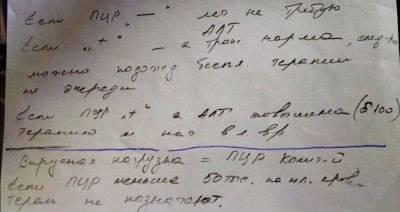 Если ПЦР „—“ леч не требую
Если „+“ — а тран АЛТ норма, след-но
можно подожд беспл. терапии
по очереди
Если ПЦР „+“ а АЛТ повышена (б 100)
терапию м нач в л вр
Вирусная нагрузка = ПЦР колич-й
Если ПЦР меньше 50 тыс. на мл. крови
терап. не назначают.